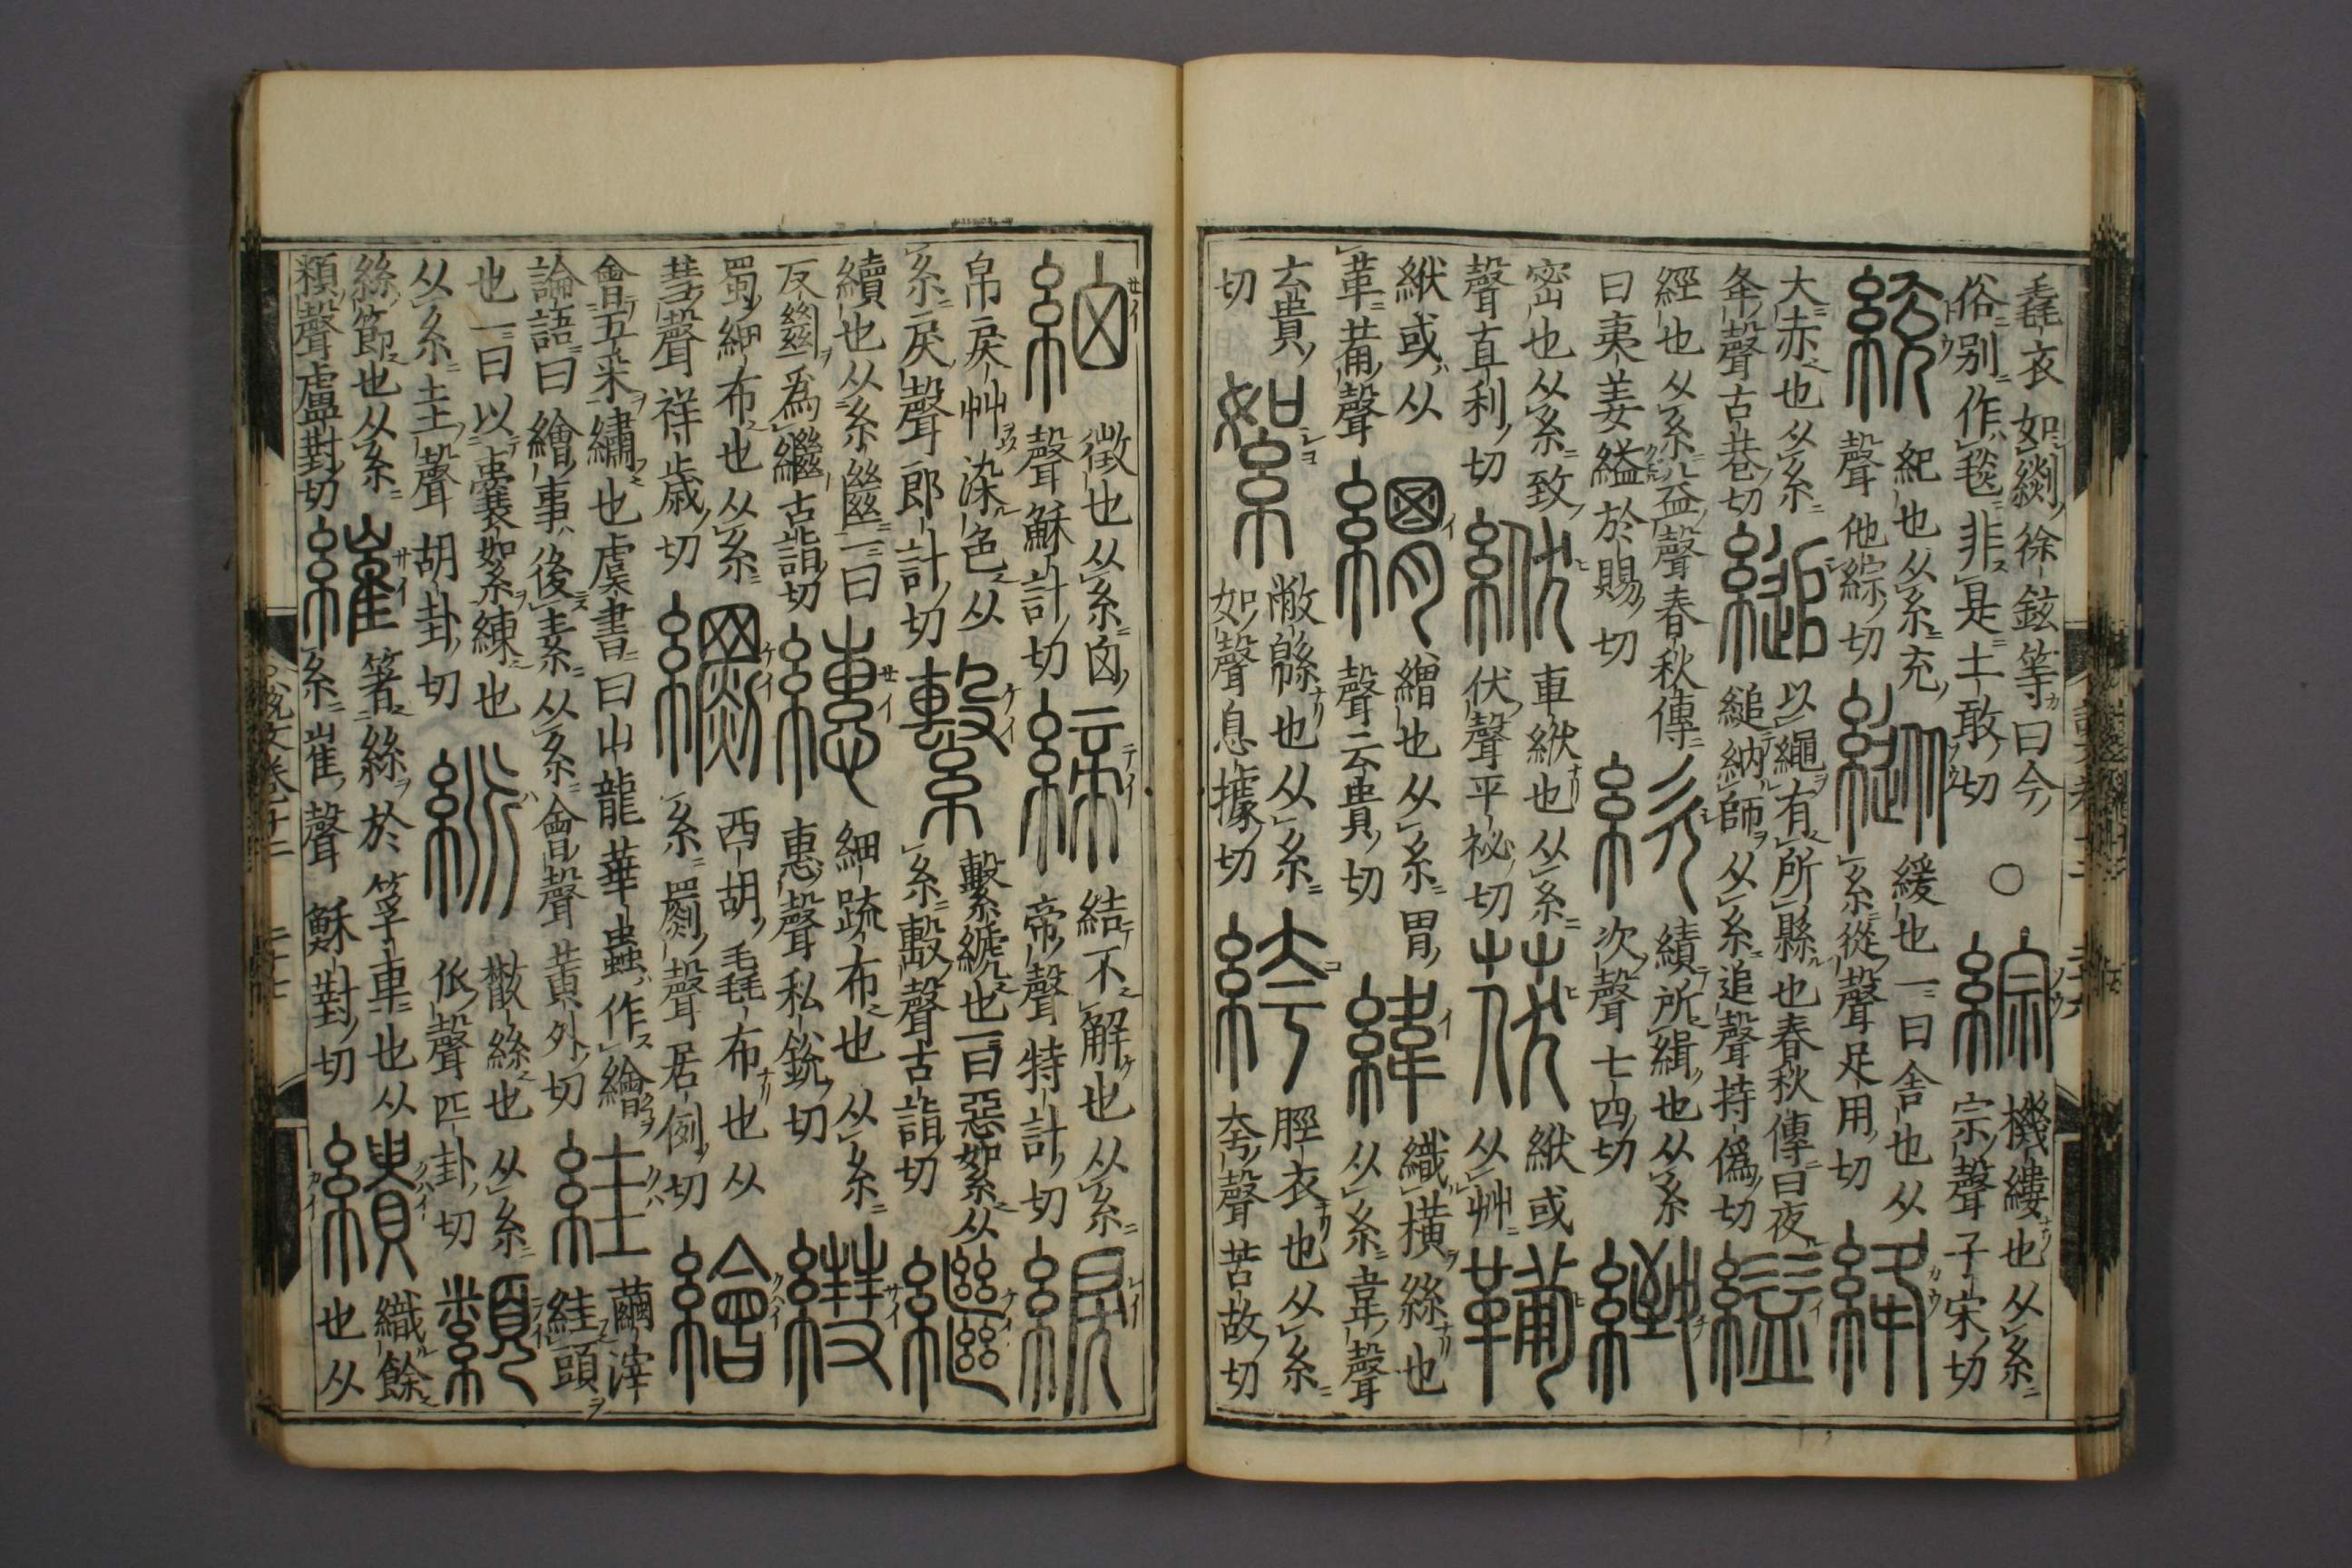 毳衣如緂徐鉉等曰今
俗別作毯非是土敢切
○
綜
機縷也从糸
宗聲子宋切
統
紀也从糸充
聲他綜切
縱
緩也一曰舍也从
糸從聲足用切
絳
大赤也从糸
夅聲古巷切
縋
以繩有所縣也春秋傳曰夜
縋納師从糸追聲持僞切
縊
經也从糸益聲春秋傳
曰夷姜縊於賜切
絘
績所緝也从糸
次聲七四切
緻
密也从糸致
聲直利切
絥
車絥也从糸
伏聲平祕切
茯
絥或
从艸
絥或从
革𤰇聲
繒也从糸胃
聲云貴切
緯
織橫絲也
从糸韋聲
云貴
切
絮
敝緜也从糸
如聲息據切
絝
脛衣也从糸
夸聲苦故切
細
微也从糸囟
聲穌計切
締
結不解也从糸
帝聲特計切
綟
帛戾艸染色从
糸戾聲郎計切
繫
繫𦃇也一曰惡絮从
糸毄聲古詣切
繼
續也从糸㡭一曰
反㡭爲繼古詣切
繐
細疏布也从糸
惠聲私銳切
蜀細布也从糸
彗聲祥歲切
西胡毳布也从
糸罽聲居例切
繪
會五采繡也虞書曰山龍華蟲作繪
論語曰繪事後素从糸會聲黃外切
絓
繭滓
絓頭
也一曰以囊絮練也
从糸圭聲胡卦切
散絲也从糸
𠂢聲匹卦切
纇
絲節也从糸
頪聲盧對切
繀
著絲於筟車也从
糸崔聲穌對切
繢
織餘
也从
説文卷十二